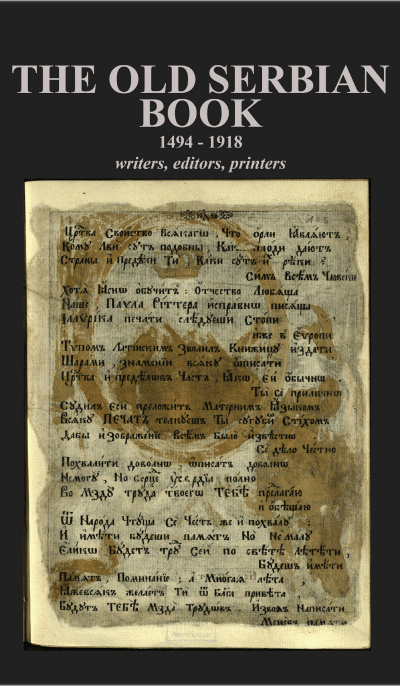 THE OLD SERBIAN
BOOK
1494 - 1918
writers, editors, printers
105
Црⷭ҇тва Свойство Всѧкагѡ, Что орли Ꙗвлѧютъ,
Кому Лви сутъ подобны, плоди даютъ
Страны и Предѣли Ти, Каки сутъ и рѣки:
Симъ Всѣмъ Человѣки
Хотѧ Ꙗснѡ обучитъ: Отчество Любѧща
Наше, Паѵла Рїттера исправнѡ писѧща
печати слѣдующи Стопи
иже в Еѵропи
Тупомъ Латїнскимъ Зволилъ Книжицу издати
Шарами, знаменїи всѧку ѡписати
Црⷭ҇тва и предѣлѡвъ Частъ, Ꙗкѡ Ей обычнѡ.
Ты се приличнѡ
Судилъ Еси преложитъ Матернимъ Ꙗзыкомъ
Всѧку ПЕЧАТЪ толкуешъ Ты сугубымъ Стїхомъ
Дабы изображенїе Всѣмъ Было извѣстно
Се дѣло Честно
Похвалити доволнѡ, ѡписатъ доволнѡ
Немогу, Но Серце усердїѧ полно
Во Мзду труда твоегѡ ТЕБѢ прелагаю
и обѣщаю
Ѿ Народа Чтуща Се Честъ же и похвалу:
И имѣти будеши памѧтъ Но Немалу
Еликѡ Будетъ труⷣ Сей по свѣтѣ Лѣтѣти,
Будешъ имѣти
Памѧтъ, Поминанїе; а Многаѧ лѣта
желаетъ Ти ѿ Бога привѣта,
Будутъ ТЕБѢ Мзда Трудѡвъ. Изволъ Написати